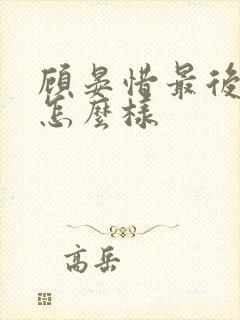 顾晏惜最後
怎麼样
高岳